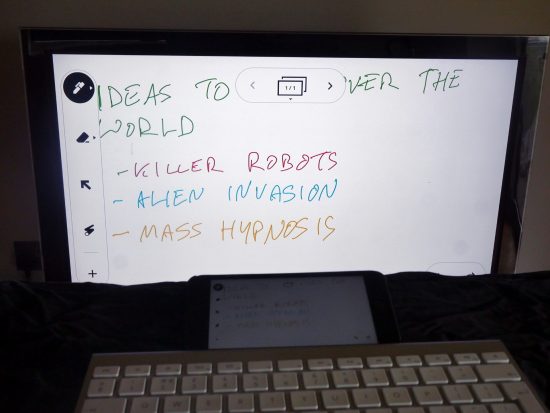 IDEAS TO VER THE
1/1
WORLD
- KILLER ROBOTS
- ALIEN INVASION
- MASS HYPNOSIS